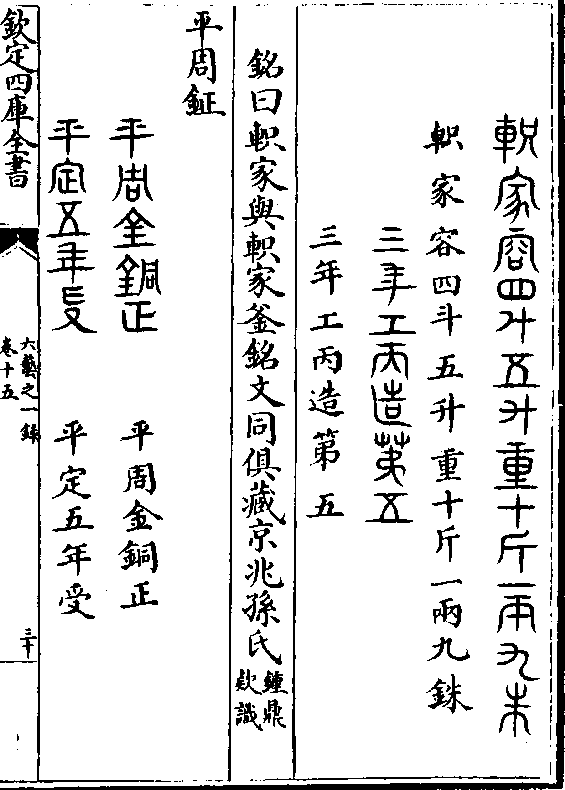 軹家容四斗五升重十斤一兩九朱
軹家容四斗五升重十斤一兩九銖
三年工丙造第五
三年工丙造第五
銘曰軹家與軹家釜銘文同俱藏京兆孫氏鍾鼎
欵識
平周鉦
平周金銅正
平周金銅正
平定五年受
平定五年受
欽定四庫全書
六藝之一録
卷十五
三十